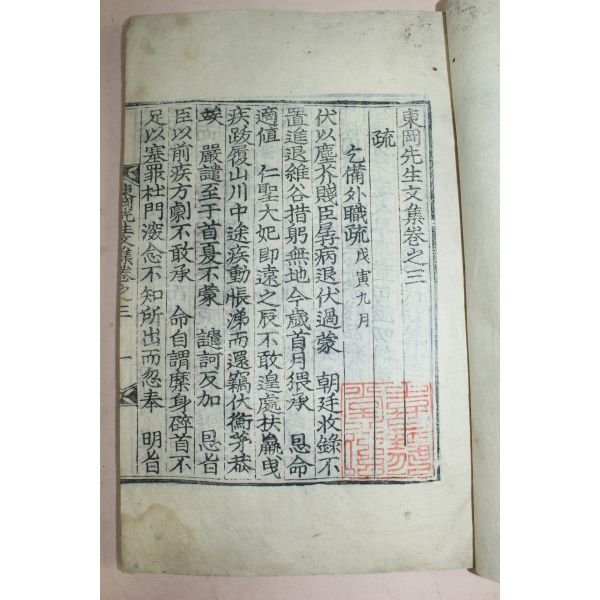 東岡先生文集卷之三
疏
乞備外職疏 戊寅九月
伏以塵芥賤臣孱病退伏過蒙 朝廷收錄不
置進退維谷措躬無地今歲首月猥承 恩命
適値 仁聖大妃即遠之辰不敢遑處扶羸曳
疾跋履山川中途疾動悵涕而還竊伏衡茅恭
竢 嚴譴至于首夏不蒙 譴訶反加 恩旨
臣以前疾方劇不敢承 命自謂糜身碎首不
足以塞罪杜門深念不知所出而忽奉 明旨
東岡先生文集卷之三 一